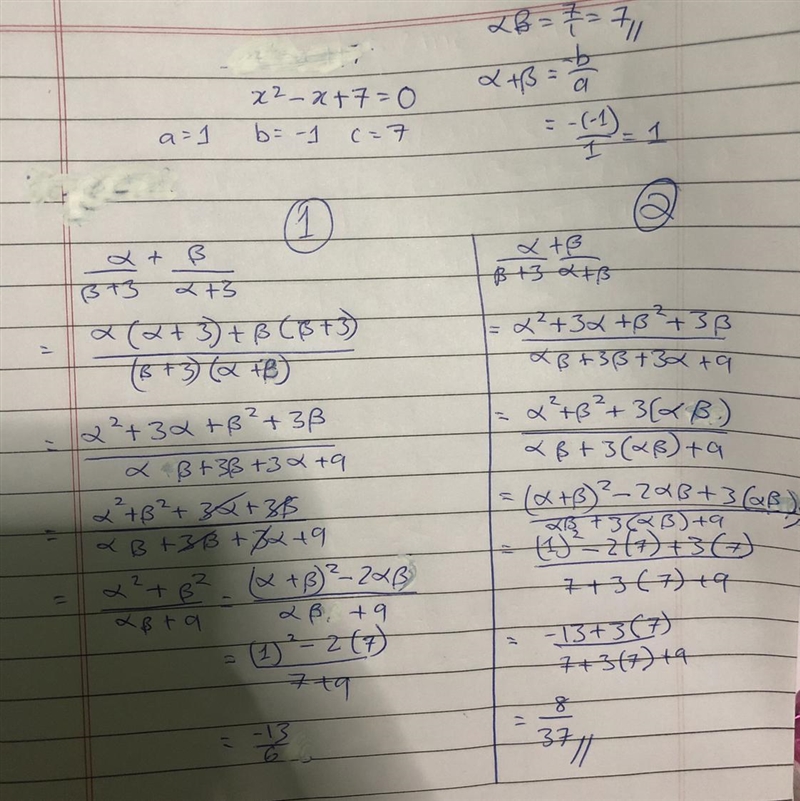 αβ = 7/1 = 7//
x² - x + 7 = 0
α+β = -b/a
a=1 b= -1 c= 7
= -(-1)/1 = 1
1
α/β+3 + β/α+3
= α(α+3)+β(β+3)/(β+3)(α+β)
= α²+3α+β²+3β/α β+3β+3α+9
= α²+β²+3α+3β/αβ+3β+3α+9
= α²+β²/αβ+9 = (α+β)²-2αβ/αβ +9
= (1)²-2(7)/7+9
= -13/6
2
α/β+3 + β/α+β
= α²+3α+β²+3β/αβ+3β+3α+9
= α²+β²+3(αβ)/αβ+3(αβ)+9
= (α+β)²-2αβ+3(αβ)/αβ+3(αβ)+9
= (1)²-2(7)+3(7)/7+3(7)+9
= -13+3(7)/7+3(7)+9
= 8/37//